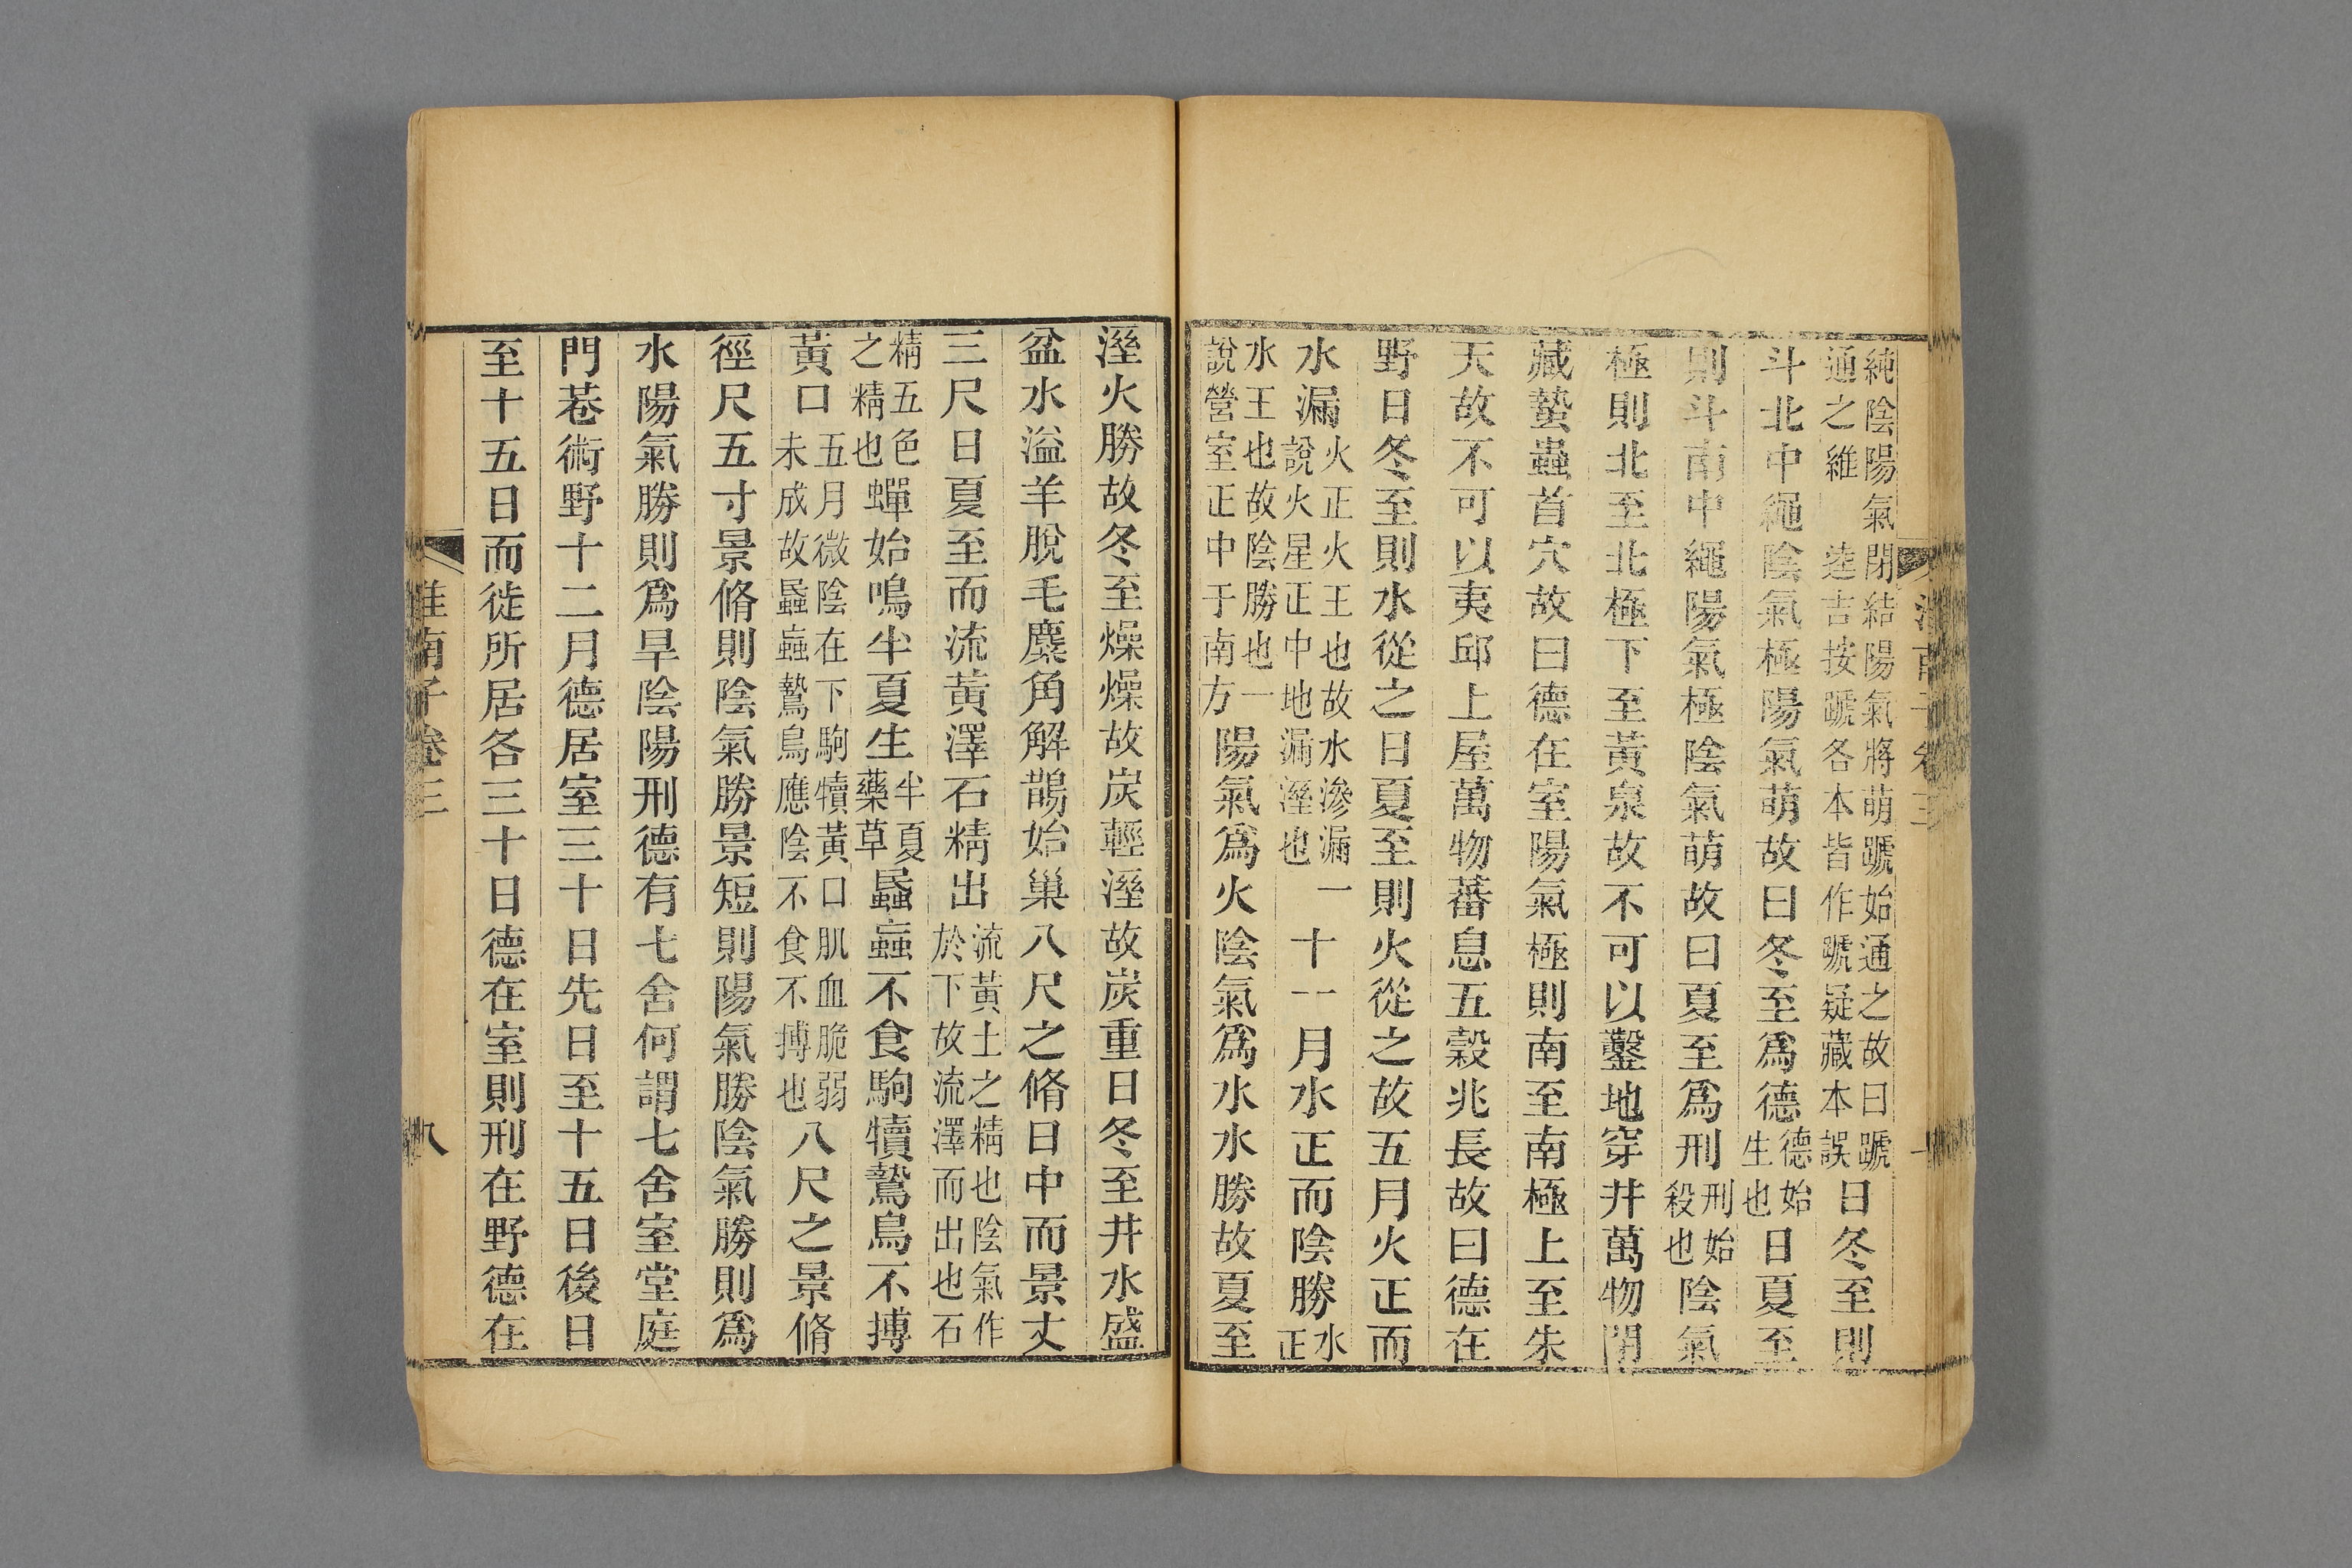 純陰陽氣閉結陽氣將萌蹏始通之故曰蹏
通之維　逵吉按蹏各本皆作蹏疑藏本誤日冬至則
斗北中繩陰氣極陽氣萌故曰冬至爲德德始生也日夏至
則斗南中繩陽氣極陰氣萌故曰夏至爲刑刑始殺也陰氣
極則北至北極下至黃泉故不可以鑿地穿井萬物閉
藏蟄蟲首穴故曰德在室陽氣極則南至南極上至朱
天故不可以夷邱上屋萬物蕃息五穀兆長故曰德在
野日冬至則水從之日夏至則火從之故五月火正而
水漏火正火王也故水滲漏一說火星正中地漏溼也十一月水正而陰勝水正
水王也故陰勝也一說營室正中于南方陽氣爲火陰氣爲水水勝故夏至
溼火勝故冬至燥燥故炭輕溼故炭重日冬至井水盛
盆水溢羊脫毛麋角解鵲始巢八尺之脩日中而景丈
三尺日夏至而流黃澤石精出流黃土之精也陰氣作於下故流澤而出也石
精五色之精也蟬始鳴半夏生半夏藥草蟁蝱不食駒犢鷙鳥不搏
黃口五月微陰在下駒犢黃口肌血脆弱未成故蟁蝱鷙鳥應陰不食不搏也八尺之景脩
徑尺五寸景脩則陰氣勝景短則陽氣勝陰氣勝則爲
水陽氣勝則爲旱陰陽刑德有七舍何謂七舍室堂庭
門巷術野十二月德居室三十日先日至十五日後日
至十五日而徙所居各三十日德在室則刑在野德在
淮南子卷三
八